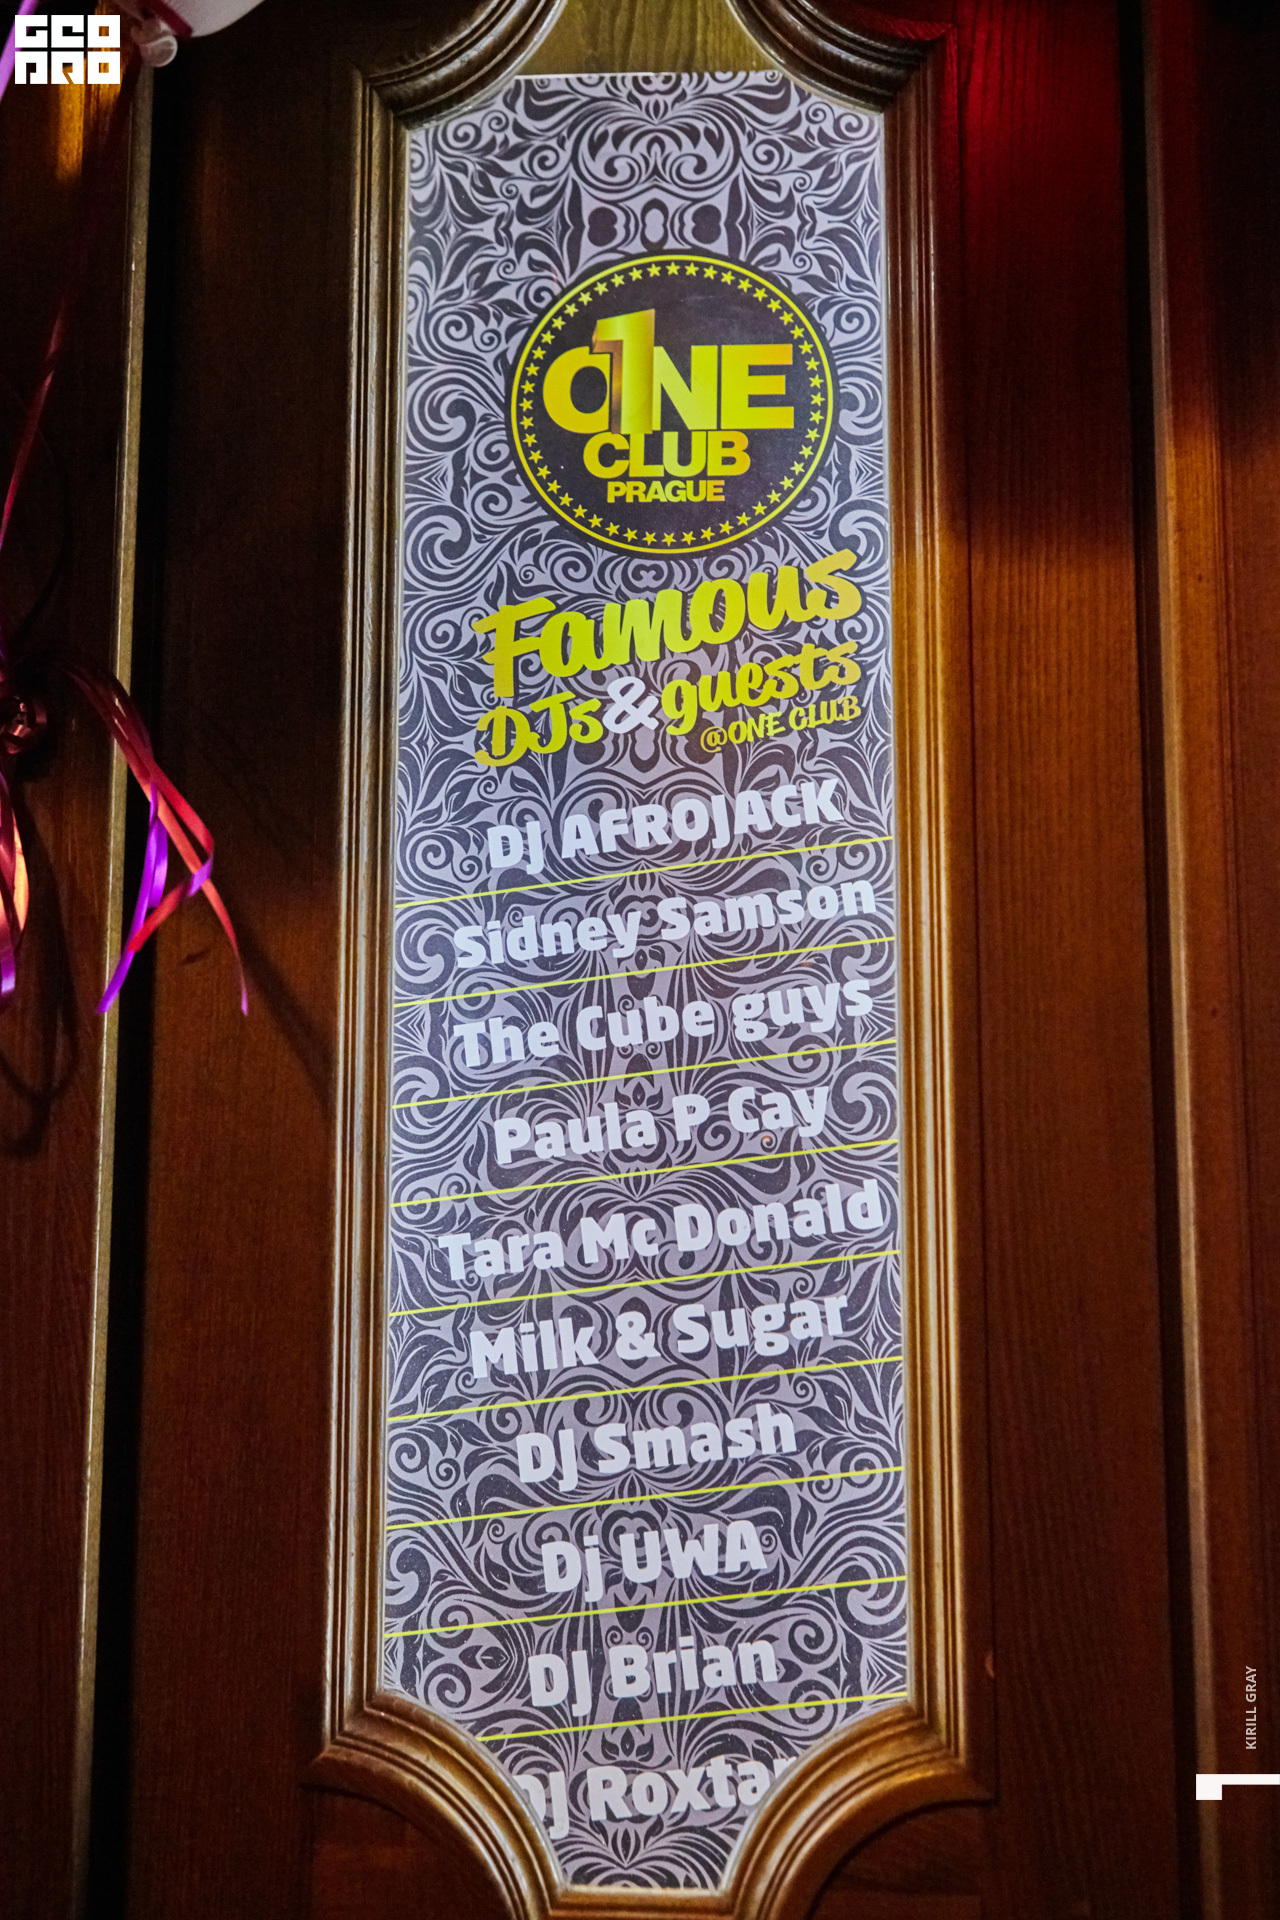 GEO
PRO
ONE
1
CLUB
PRAGUE
Famous
DJs & guests
@ONE CLUB
DJ AFROJACK
Sidney Samson
The Cube guys
Paula P Cay
Tara Mc Donald
Milk & Sugar
DJ Smash
Dj UWA
DJ Brian
Dj Roxtar
KIRILL GRAY